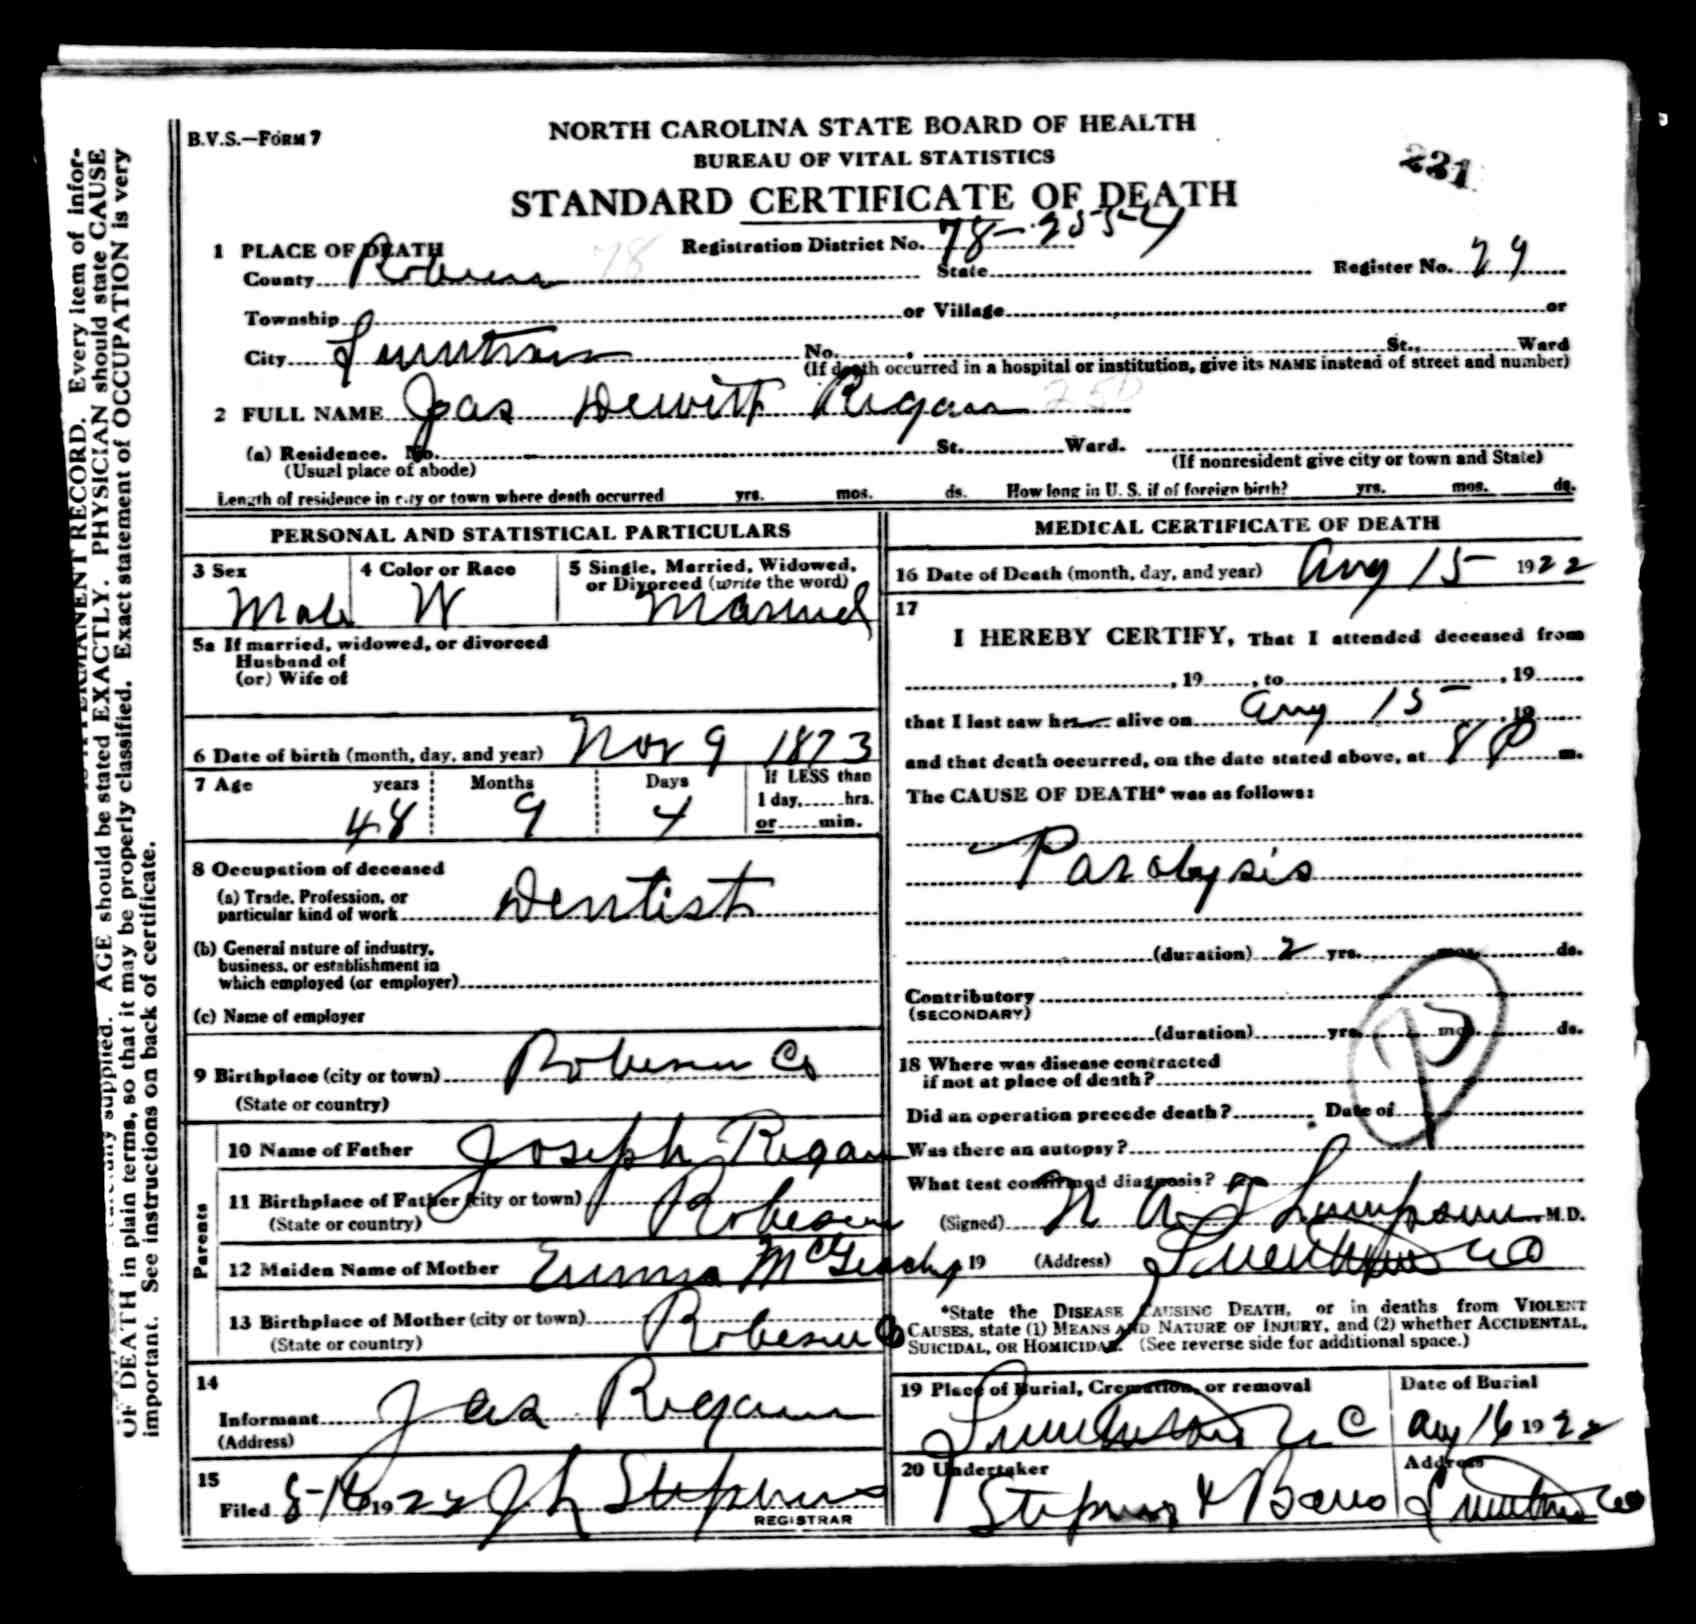 B.V.S.—FORM 7
NORTH CAROLINA STATE BOARD OF HEALTH
BUREAU OF VITAL STATISTICS
231
STANDARD CERTIFICATE OF DEATH
1 PLACE OF DEATH 78 Registration District No. 78-2554
County Robeson State Register No. 29
Township or Village or
City Lumberton No. , St., Ward
(If death occurred in a hospital or institution, give its NAME instead of street and number)
2 FULL NAME Jas Dewitt Regan 250
(a) Residence. No. St. Ward.
(Usual place of abode) (If nonresident give city or town and State)
Length of residence in city or town where death occurred yrs. mos. ds. How long in U. S. if of foreign birth? yrs. mos. ds.
PERSONAL AND STATISTICAL PARTICULARS
3 Sex Male
4 Color or Race W
5 Single, Married, Widowed,
or Divorced (write the word)
Married
5a If married, widowed, or divorced
Husband of
(or) Wife of
6 Date of birth (month, day, and year) Nov 9 1873
7 Age years Months Days If LESS than
1 day, hrs.
48 9 4 or min.
8 Occupation of deceased
(a) Trade, Profession, or
particular kind of work Dentist
(b) General nature of industry,
business, or establishment in
which employed (or employer)
(c) Name of employer
9 Birthplace (city or town) Robeson Co
(State or country)
Parents
10 Name of Father Joseph Regan
11 Birthplace of Father (city or town) Robeson
(State or country)
12 Maiden Name of Mother Emma McGeachy
13 Birthplace of Mother (city or town) Robeson Co
(State or country)
14
Informant Jas Regan
(Address)
15
Filed 8-16 1922 Stephens
REGISTRAR
MEDICAL CERTIFICATE OF DEATH
16 Date of Death (month, day, and year) Aug 15 1922
17
I HEREBY CERTIFY, That I attended deceased from
, 19 , to , 19
that I last saw h alive on Aug 15 , 19
and that death occurred, on the date stated above, at 8 P m.
The CAUSE OF DEATH* was as follows:
Paralysis
(duration) 2 yrs. mos. ds.
Contributory
(SECONDARY)
(duration) yrs. mos. ds.
P
18 Where was disease contracted
if not at place of death?
Did an operation precede death? Date of
Was there an autopsy?
What test confirmed diagnosis?
(Signed) N A Thompson M.D.
19 (Address) Lumberton NC
*State the DISEASE CAUSING DEATH, or in deaths from VIOLENT
CAUSES, state (1) MEANS AND NATURE OF INJURY, and (2) whether ACCIDENTAL,
SUICIDAL, OR HOMICIDAL. (See reverse side for additional space.)
19 Place of Burial, Cremation, or removal
Lumberton N C
Date of Burial
Aug 16 1922
20 Undertaker
Stephens & Barnes
Address
Lumberton NC
PERMANENT RECORD. Every item of infor-
carefully supplied. AGE should be stated EXACTLY. PHYSICIAN should state CAUSE
OF DEATH in plain terms, so that it may be properly classified. Exact statement of OCCUPATION is very
important. See instructions on back of certificate.